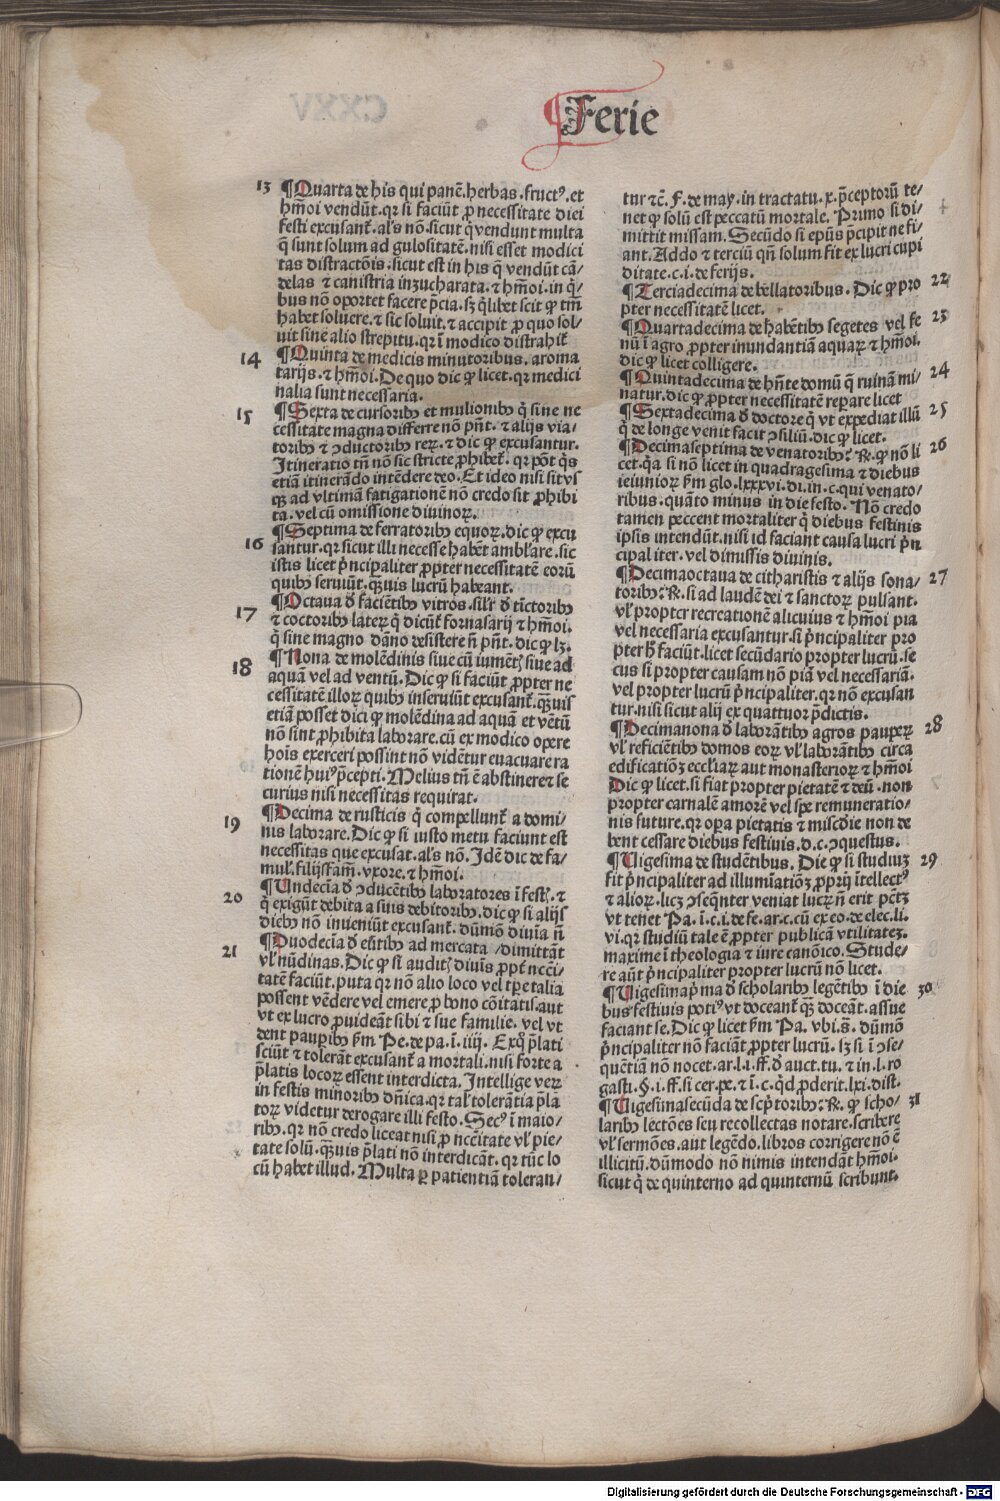 Ferie
13 ¶Quarta de his qui panē.herbas.fructꝰ.et
hmōi vendūt.qꝛ si faciūt ꝓ necessitate diei
festi excusant̄.al's nō.sicut q̄ vendunt multa
q̄ sunt solum ad gulositatē.nisi esset modici
tas distractōis.sicut est in his q̄ vendūt cā/
delas ⁊ canistria inzucharata.⁊ hmōi.in q̄/
bus nō oportet facere p̄cia.sꝫ q̄libet scit ꝙ tm̄
habet soluere.⁊ sic soluit.⁊ accipit ꝓ quo sol/
uit sine alio strepitu.qꝛ ī modico distrahit̄
14 ¶Quinta de medicis minutoribus.aroma
tarijs.⁊ hmōi.De quo dic ꝙ licet.qꝛ medici
nalia sunt necessaria.
15 ¶Sexta de cursoribꝰ et mulionibꝰ q̄ sine ne
cessitate magna differre nō pn̄t.⁊ alijs via/
toribꝰ ⁊ ↄductoribꝰ reꝝ.⁊ dic ꝙ excusantur.
Itineratio tn̄ nō sic stricte ꝓhibet̄.qꝛ pōt q̄s
etiā itinerādo intēdere deo.Et ideo nisi sit vsꝫ
qꝫ ad vltimā fatigationē nō credo sit ꝓhibi
ta.vel cū omissione diuinoꝝ.
16 ¶Septima de ferratoribꝰ equoꝝ.dic ꝙ excu
santur.qꝛ sicut illi necesse habēt ambl'are.sic
istis licet p̄ncipaliter ꝓpter necessitatē eorū
quibꝰ seruiūt.qꝫuis lucrū habeant.
17 ¶Octaua ð faciētibꝰ vitros.sil'r ð tīctoribꝰ
⁊ coctoribꝰ lateꝝ q̄ dicūt̄ fornasarij ⁊ hmōi.
q̄ sine magno dāno desistere n̄ pn̄t.dic ꝙ lꝫ.
18 ¶Nona de molēdinis siue cū iumētꝭ siue ad
aquā vel ad ventū.Dic ꝙ si faciūt ꝓpter ne
cessitatē illoꝝ quibꝰ inseruiūt excusant̄.qꝫuis
etiā posset dici ꝙ molēdina ad aquā et vētū
nō sint ꝓhibita laborare.cū ex modico opere
hoīs exerceri possint nō vidētur euacuare ra
tionē huiꝰ p̄cepti.Melius tn̄ ē abstinere⁊ se
curius nisi necessitas requirat.
19 ¶Decima de rusticis q̄ compellunt̄ a domi/
nis laborare.Dic ꝙ si iusto metu faciunt est
necessitas que excusat.al's nō.Idē dic de fa/
mul'.filijsfam̄.vxore.⁊ hmōi.
20 ¶Undecīa ð ↄducētibꝰ laboratores ī festꝭ.⁊
q̄ exigūt debita a suis debitoribꝰ.dic ꝙ si alijs
diebꝰ nō inueniūt excusant̄.dūmō diuīa n̄
21 ¶Duodecīa ð eūtibꝰ ad mercata /dimittāt
vl' nūdinas.Dic ꝙ si auditꝭ diuīs ꝓpt̄ ncc̄i/
tatē faciūt.puta qꝛ nō alio loco vel tp̄e talia
possent vēdere vel emere ꝓ bono cōitatis.aut
vt ex lucro ꝓuideāt sibi ⁊ sue familie.vel vt
dent pauꝑibꝰ ẜm Pe.de pa.ī.iiij. Exqͦ p̄lati
sciūt ⁊ tolerāt excusant̄ a mortali.nisi forte a
p̄latis locoꝝ essent interdicta.Intellige veꝝ
in festis minoribꝰ dn̄ica.qꝛ tal' tolerātia p̄la
toꝝ videtur derogare illi festo.Secꝰ ī maio/
ribꝰ.qꝛ nō credo liceat nisi ꝓ ncc̄itate vl' pie/
tate solū.qꝫuis p̄lati nō interdicāt.qꝛ tūc lo
cū habet illud.Multa ꝑ patientiā toleran/
tur ⁊c̄.F.de may.in tractatu.x.p̄ceptorū te/
net ꝙ solū est peccatū mortale. Primo si di/
mittit missam.Secūdo si ep̄us p̄cipit ne fi/
ant.Addo ⁊ terciū qn̄ solum fit ex lucri cupi
ditate.c.i.de ferijs.
22 ¶Terciadecima de bellatoribus.Dic ꝙ pro
pter necessitatē licet.
23 ¶Quartadecima de habētibꝰ segetes vel fe
nū ī agro ꝓpter inundantiā aquaꝝ ⁊ hmōi.
dic ꝙ licet colligere.
24 ¶Quintadecima de hn̄te domū q̄ ruinā mi/
natur.dic ꝙ ꝓpter necessitatē reꝑare licet
25 ¶Sextadecima ð doctore q̄ vt expediat illū
q̄ de longe venit facit ↄsiliū.dic ꝙ licet.
26 ¶Decimaseptima de venatoribꝰ.℟.ꝙ nō li
cet.q̄a si nō licet in quadragesima ⁊ diebus
ieiunioꝝ ẜm glo.lxxxvi.di.in.c.qui venato/
ribus.quāto minus in die festo. Nō credo
tamen peccent mortaliter q̄ diebus festinis
ipsis intendūt.nisi id faciant causa lucri p̄n
cipaliter.vel dimissis diuinis.
27 ¶Decimaoctaua de citharistis ⁊ alijs sona/
toribꝰ.℟.si ad laudē dei ⁊ sanctoꝝ pulsant.
vl' propter recreationē alicuius ⁊ hmōi pia
vel necessaria excusantur.si p̄ncipaliter pro
pter ħ faciūt.licet secūdario propter lucrū.se
cus si propter causam nō piā vel necessariā.
vel propter lucrū p̄ncipaliter.qꝛ nō excusan
tur.nisi sicut alij ex quattuor p̄dictis.
28 ¶Decimanona ð laborātibꝰ agros pauperꝝ
vl' reficiētibꝰ domos eoꝝ vl' laborātibꝰ circa
edificatiōꝫ eccl'iaꝝ aut monasterioꝝ ⁊ hmōi
Dic ꝙ licet.si fiat propter pietatē ⁊ deū.non
propter carnalē amorē vel spe remuneratio/
nis future.qꝛ oꝑa pietatis ⁊ misc̄die non de
bent cessare diebus festiuis.d.c.ↄquestus.
29 ¶Uigesima de studētibus.Dic ꝙ si studiuꝫ
fit p̄ncipaliter ad illumīatiōꝫ ꝓprij ītellectꝰ
⁊ alioꝝ.licꝫ ↄseq̄nter veniat lucꝝ n̄ erit pctꝫ
vt tenet Pa.ī.c.i.de fe.ar.c.cū ex eo.de elec.li.
vi.qꝛ studiū tale ē ꝓpter publicā vtilitateꝫ.
maxime ī theologia ⁊ iure canōico.Stude/
re aūt p̄ncipaliter propter lucrū nō licet.
30 ¶Uigesimap̄ma ð scholaribꝰ legētibꝰ ī die
bus festiuis potiꝰ vt doceant̄ qꝫ doceāt.assue
faciant se.Dic ꝙ licet ẜm Pa.vbi.s̄.dūmō
p̄ncipaliter nō faciāt ꝓpter lucrū.sꝫ si ī ↄse/
quētiā nō nocet.ar.l.i.ff.ð auct.tu.⁊ in.l.ro
gasti.§.i.ff.si cer.pe.⁊ ī.c.q̄d ꝓderit.lxi.dist.
31 ¶Uigesimasecūda de scp̄toribꝰ.℟.ꝙ scho/
laribꝰ lectōes seu recollectas notare.scribere
vl' sermōes.aut legēdo.libros corrigere nō ē
illicitū.dūmodo nō nimis intendāt hmōi.
sicut q̄ de quinterno ad quinternū scribunt.
Digitalisierung gefördert durch die Deutsche Forschungsgemeinschaft - DFG